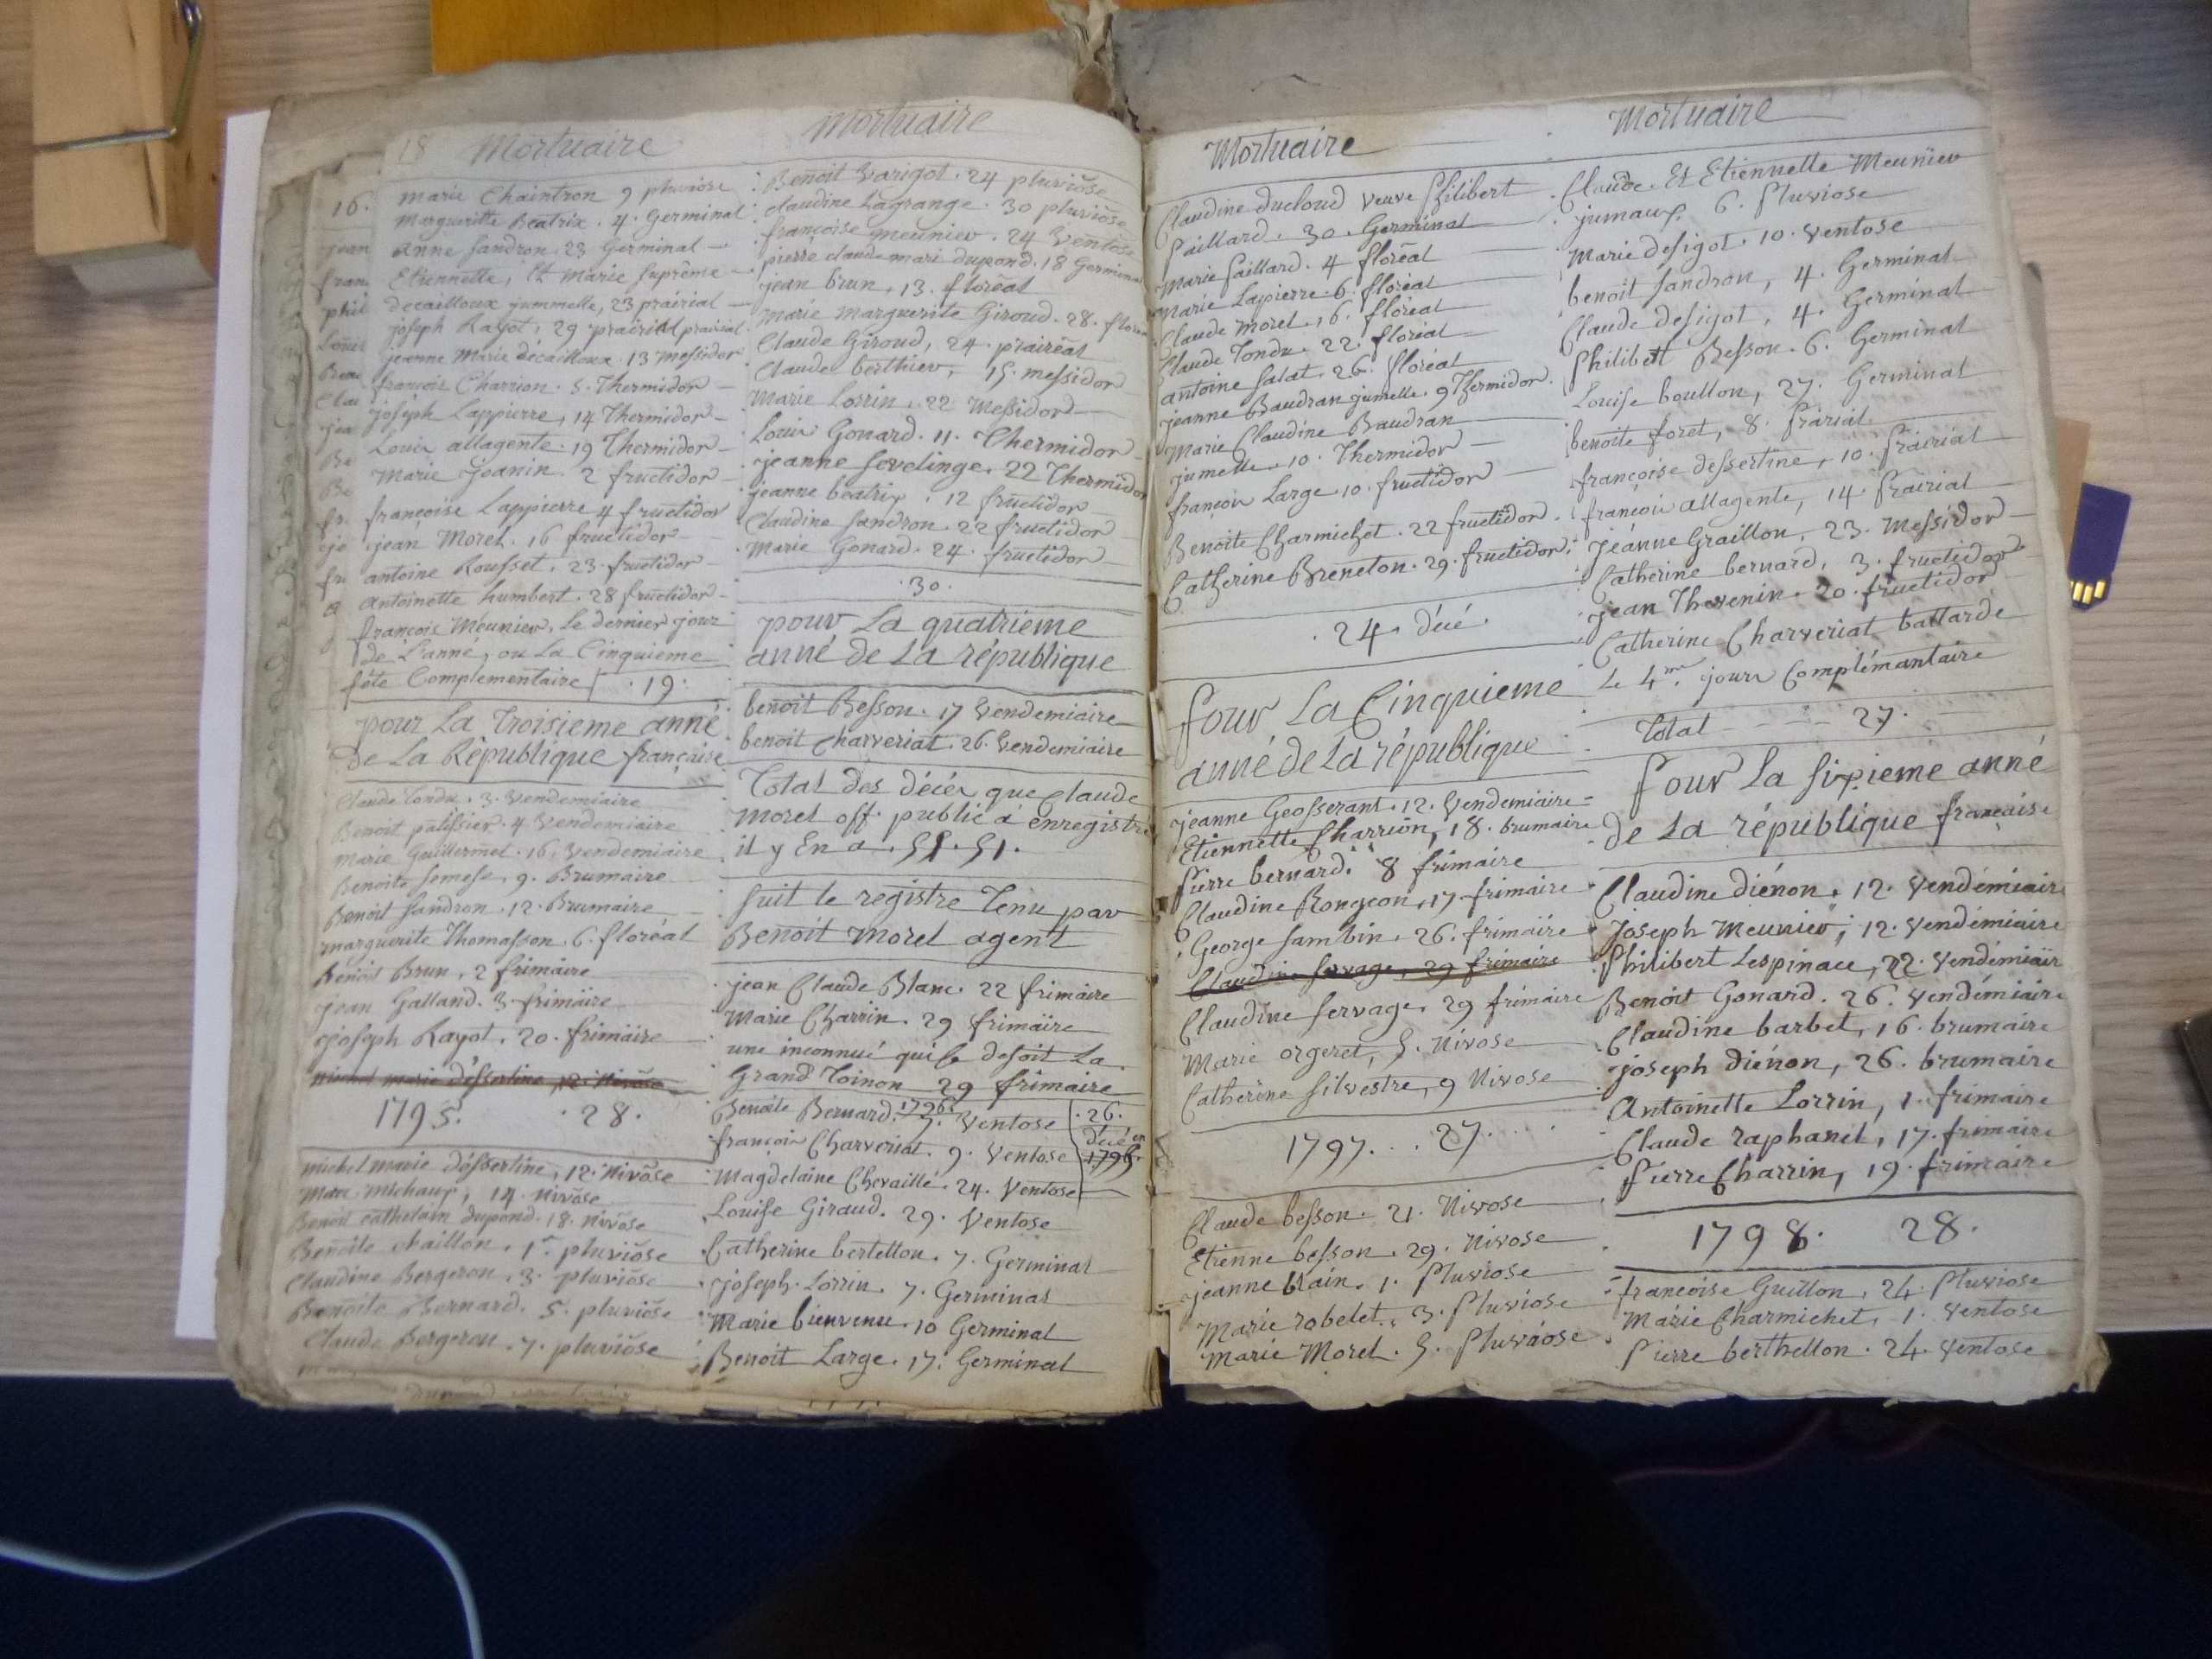 18 Mortuaire
16.
marie Chaintron 9 pluviose
Margueritte Beatrix. 4. Germinal
anne Sandron 23 Germinal
Etiennette, Et Marie Suprême
decailloux jummelle, 23 prairial
joseph Rayot, 29 prairial prairial
jeanne Marie décailloux 13 Messidor
françois Charrion. 5. Thermidor
joséph Lappierre, 14 Thermidor
Louis allagente. 19 Thermidor
Marie Joanin. 2 fructidor
françoise Lappierre 4 fructidor
jean Morel. 16 fructidor
antoine Rousset. 23 fructidor
Antoinette humbert. 28 fructidor
françois Meunier, Le dernier jour
de L'anné, ou La Cinquieme
fête Complementaire .19.
pour La Troisieme anné
De La République française
Claude Tondu. 3. Vendemiaire
Benoit palissier. 4 Vendemiaire
marie Guillermet. 16. Vendemiaire
Benoite Semese. 9. Brumaire
Benoit Sandron. 12. Brumaire
marguerite Thomasson. 6. floréal
Bénoit Brun, 2 frimaire
jean Galland. 3. frimaire
joseph Rayot. 20. frimaire
michel marie déssertine, 12. Nivôse
1795. .28.
michel marie déssertine, 12. Nivôse
Marc Michaux, 14. nivôse
Benoit cathelain dupond. 18. nivôse
Benoîte chaillon. 1er pluviôse
Claudine Bergeron. 3. pluviôse
Benoîte Bernard. 5. pluviôse
Claude Bergeron. 7. pluviôse
Mortuaire
Benoit Varigot. 24 pluviôse
claudine Lagrange. 30 pluviôse
françoise meunier. 24 Ventose
pierre claude mari dupond. 18 Germinal
jean brun, 13. floréal
Marie Marguerite Giroud. 28. floreal
Claude Giroud, 24. prairéal
Claude berthier, 15. messidor
Marie Lorrin. 22 Messidor
Louis Gonard. 11. Thermidor
jeanne sevelinge. 22 Thermidor
jeanne beatrix. 12 fructidor
Claudine Sandron. 22 fructidor
Marie Gonard. 24. fructidor
.30.
pour La quatrieme
anné de La république
benoit Besson. 17 Vendemiaire
benoit Charveriat. 26. Vendemiaire
Total des décés que claude
Morel off. public á enregistré
il y En a. 51. 51.
Suit le registre Tenu par
Benoit Morel agent
jean Claude Blanc. 22 frimaire
Marie Charrin. 29 frimaire
une inconnuë qui se desoit La
Grand Toinon 29 frimaire
1796.
Benoîte Bernard. 7. Ventose .26.
françois Charveriat. 9. Ventose décé en 1796.
Magdelaine Chevaillé. 24. Ventose
Louise Giraud. 29. Ventose
Catherine bertellon. 7. Germinal
joseph Lorrin. 7. Germinal
Marie bienvenu. 10 Germinal
Benoit Large. 17. Germinal
Mortuaire
Claudine ducloud veuve Philibert
Paillard. 30. Germinal
Marie Paillard. 4 floréal
Marie Lapierre. 6. floréal
Claude Morel. 16. floréal
Claude Tondu. 22. floréal
antoine Salat. 26. floréal
jeanne Baudran jumelle. 9 Thermidor.
Marie Claudine Baudran
jumelle. 10. Thermidor
françois Large. 10. fructidor
Benoite Charmichet. 22 fructidor.
Catherine Breneton. 29. fructidor.
.24 décé.
Pour La Cinquieme
anné de La république
jeanne Geosserant. 12. Vendemiaire
Etiennette Charrion, 18. brumaire
Pierre bernard. 8 frimaire
Claudine Rongeon, 17. frimaire
George Sambin. 26. frimaire
Claudine Servage, 29 frimaire
Claudine Servage. 29 frimaire
Marie orgeret, 5. Nivose
Catherine Silvestre, 9 Nivose
1797... 27.
Claude besson. 21. Nivose
Etienne besson. 29. Nivose
jeanne blain. 1. Pluviose
Marie robelet. 3. Pluviose
Marie Morel. 5. Pluviose
Mortuaire
Claude Et Etiennette Meunier
jumaux. 6. Pluviose
Marie desigot. 10. Ventose
benoit Sandron, 4. Germinal
Claude desigot, 4. Germinal
Philibert Besson. 6. Germinal
Louise boullon, 27. Germinal
benoite foret, 8. Prairial
françoise dessertine, 10. Prairial
françois allagente, 14. Prairial
Jeanne Graillon, 23. Messidor
Catherine bernard, 3. fructidor
jean Thevenin. 20. fructidor
Catherine Charveriat battarde
Le 4me jour Complémantaire
Total 27.
Pour La Sixieme anné
de La république française
Claudine diénon. 12. Vendémiaire
Joseph Meunier, 12. Vendémiaire
Philibert Lespinace, 22. Vendémiaire
Benoit Gonard. 26. Vendémiaire
Claudine barbet, 16. brumaire
joseph diénon, 26. brumaire
Antoinette Lorrin, 1. frimaire
Claude raphanel, 17. frimaire
Pierre Charrin, 19. frimaire
1798. 28.
francoise Guillon, 24. Pluviose
Marie Charmichet, 1. Ventose
Pierre berthellon. 24. Ventose